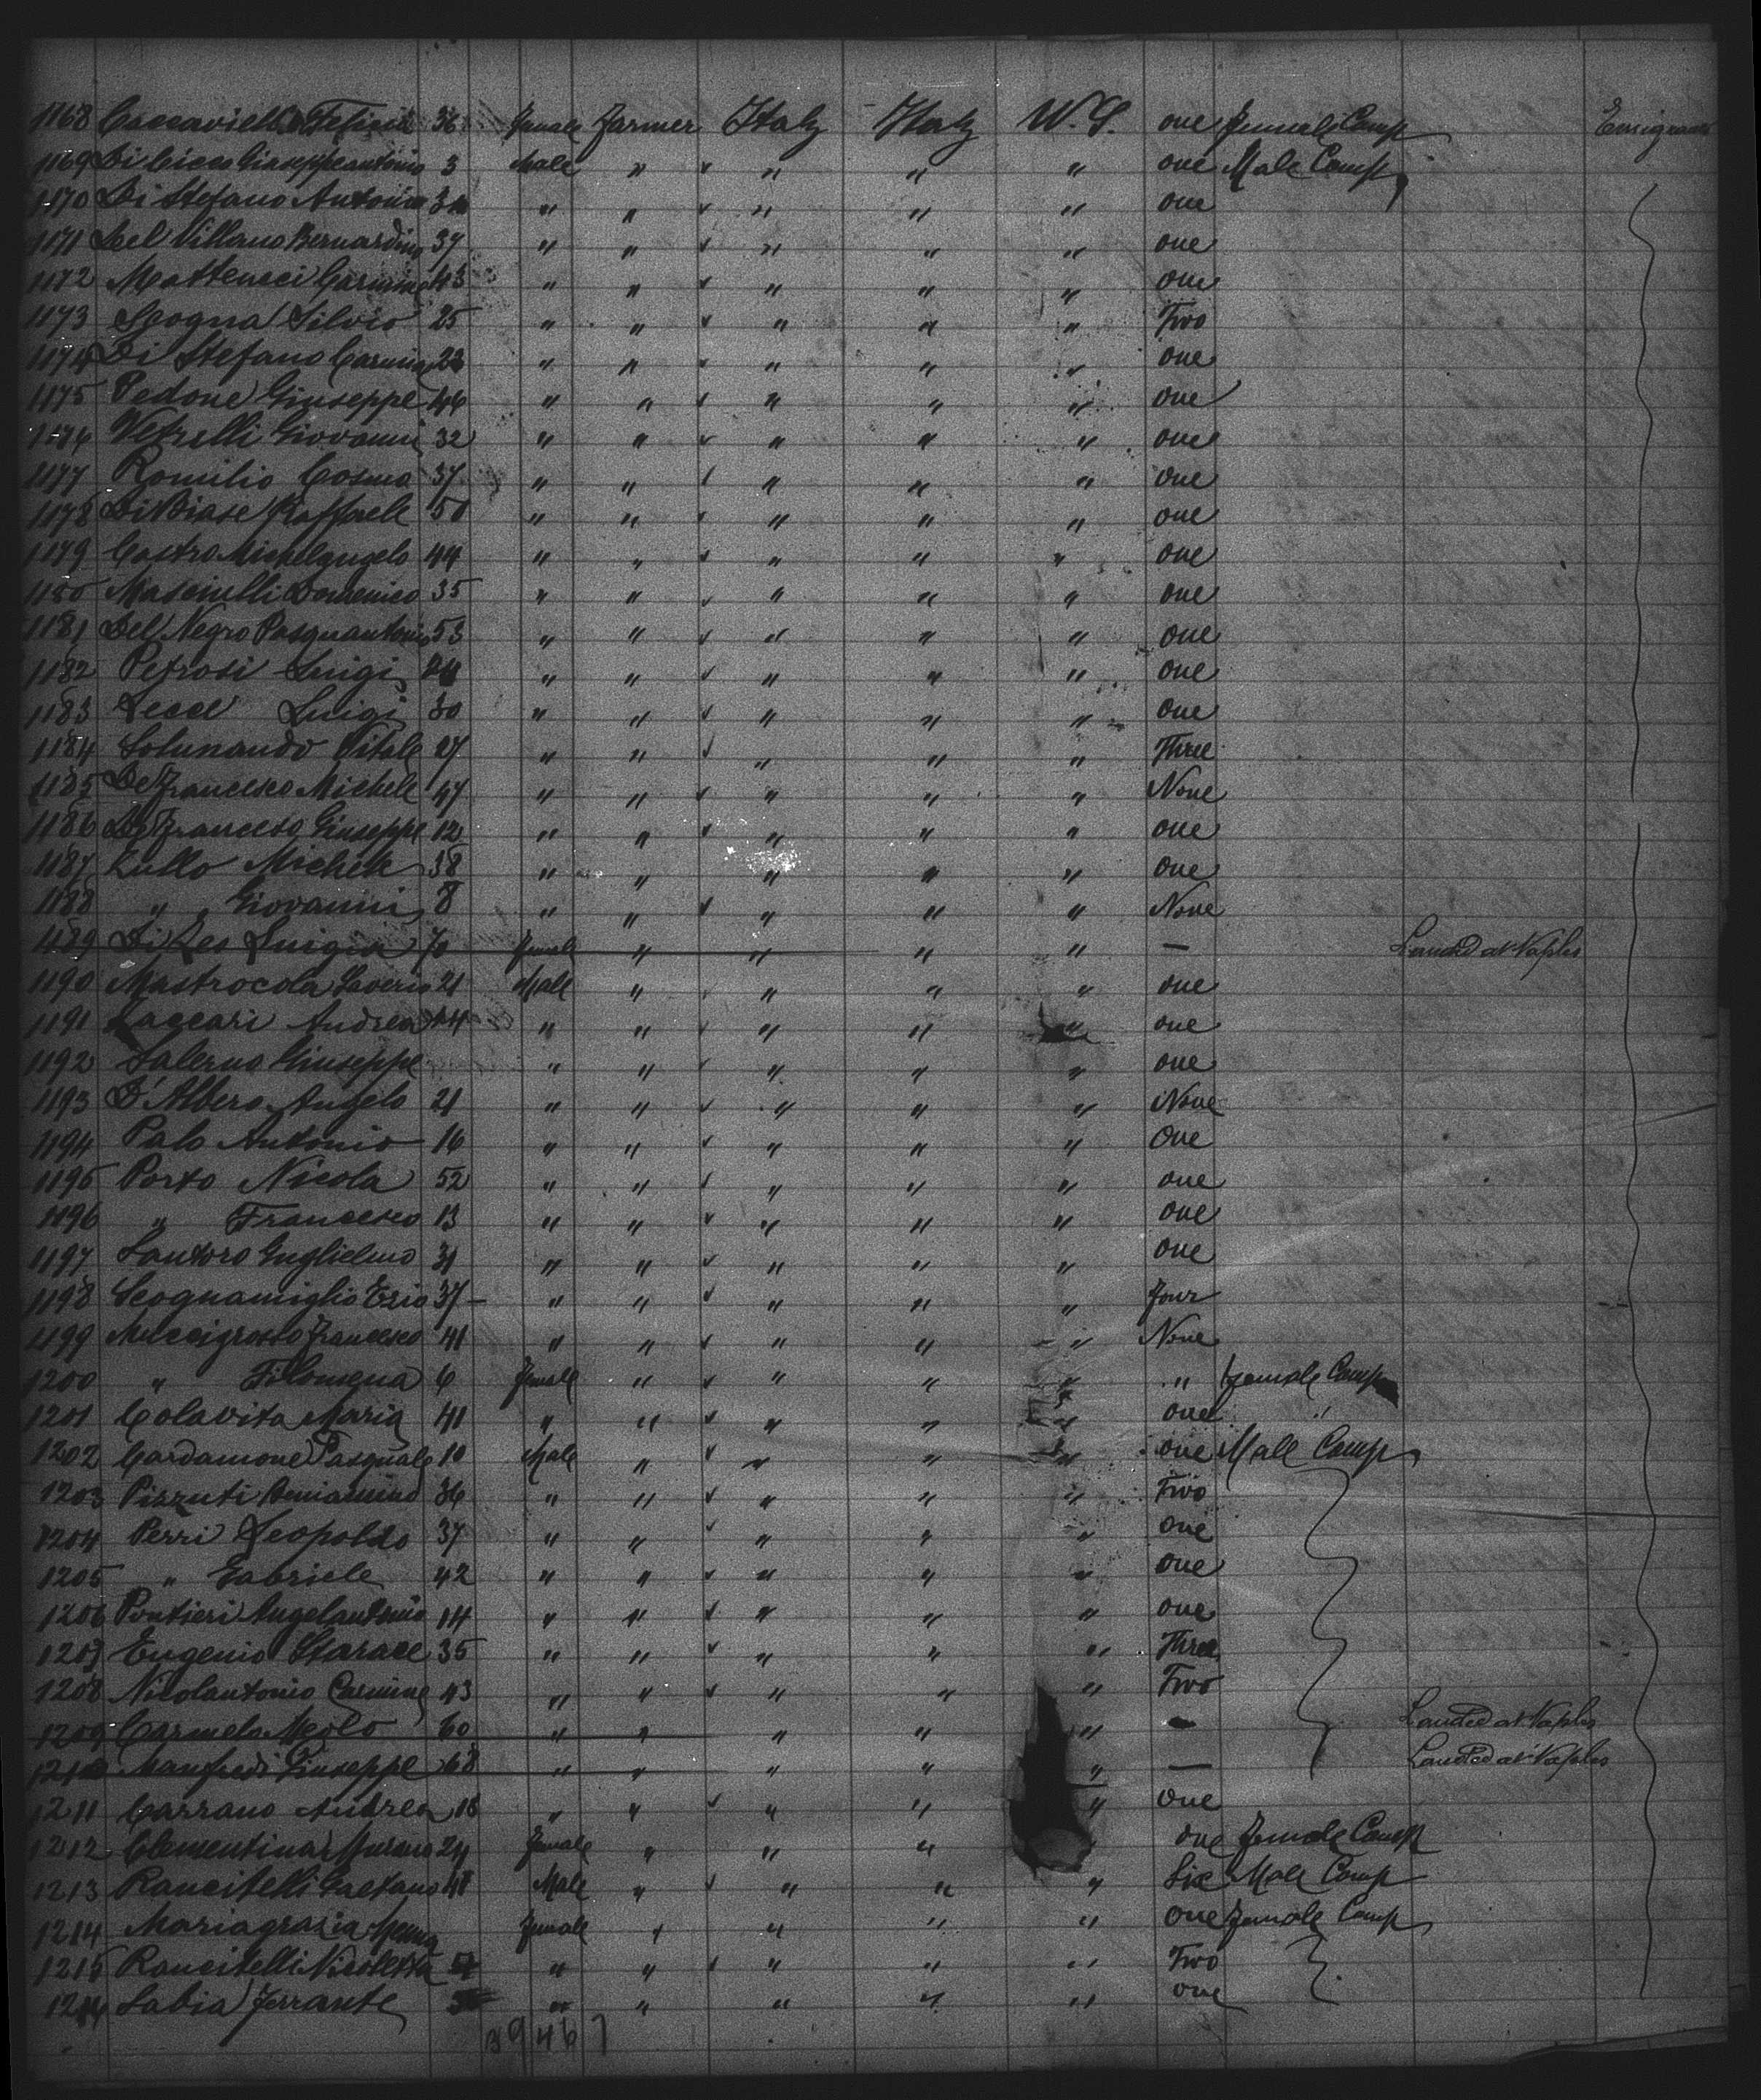 1168 Caccavielli Felicia 36 Female Farmer Italy Italy U.S. one Female Comp Emigrants
1169 Di Cicco Giuseppeantonio 3 Male " ✓ " " " one Male Comp
1170 Di Stefano Antonio " " ✓ " " " one
1171 Del Villano Bernardino 37 " " ✓ " " " one
1172 Matteucci Carmine 43 " " ✓ " " " one
1173 Scogna Silvio 25 " " ✓ " " " Two
1174 Di Stefano Carmine 23 " " ✓ " " " one
1175 Pedone Giuseppe 46 " " ✓ " " " one
1176 Vetrelli Giovanni 32 " " ✓ " " " one
1177 Romilio Cosmo 37 " " ✓ " " " one
1178 Di Biase Raffaele 50 " " ✓ " " " one
1179 Castro Michelangelo 44 " " ✓ " " " one
1180 Masciulli Domenico 35 " " ✓ " " " one
1181 Del Negro Pasquantonio 53 " " ✓ " " " one
1182 Petrosi Luigi " " ✓ " " " one
1183 Luigi 30 " " ✓ " " " one
1184 Vitale 27 " " ✓ " " " Three
1185 De Francesco Michele 47 " " ✓ " " " None
1186 De Francesco Giuseppe 12 " " ✓ " " " one
1187 Zullo Michele 38 " " " " " one
1188 " Giovanni 8 " " ✓ " " " None
1189 Di Leo Luigia 70 Female " " " " — Landed at Naples
1190 Mastrocola Saverio 21 Male " ✓ " " " one
1191 Zaccari Andrea 44 " " ✓ " " " one
1192 Salerno Giuseppe " " ✓ " " " one
1193 D'Albero Angelo 21 " " ✓ " " " None
1194 Palo Antonio 16 " " ✓ " " " one
1195 Porto Nicola 52 " " ✓ " " " one
1196 " Francesco 13 " " ✓ " " " one
1197 Santoro Guglielmo 31 " " ✓ " " " one
1198 Scognamiglio Ezio 37 " " ✓ " " " four
1199 Muccigrosso Francesco 41 " " ✓ " " " None
1200 " Filomena 6 Female " ✓ " " " " Female Comp
1201 Colavita Maria 41 " " ✓ " " " one "
1202 Cardamone Pasquale 10 Male " ✓ " " " one Male Comp
1203 Pizzuti Beniamino 36 " " ✓ " " " Two
1204 Perri Leopoldo 37 " " ✓ " " " one
1205 " Gabriele 42 " " ✓ " " " one
1206 Pontieri Angelantonio 14 " " ✓ " " " one
1207 Eugenio Starace 35 " " ✓ " " " Three
1208 Nicolantonio Carmine 43 " " ✓ " " " Two
1209 Carmela Meolo 60 " " " " " — Landed at Naples
1210 Manfredi Giuseppe 68 " " " " " — Landed at Naples
1211 Carrano Andrea 18 " " ✓ " " " one
1212 Clementina Murano 24 Female " " " one Female Comp
1213 Rancitelli Gaetano 48 Male " ✓ " " " Six Male Comp
1214 Mariagrazia Menna Female " " " " one Female Comp
1215 Rancitelli Nicoletta " " ✓ " " " Two
Sabia Ferrante " " " " " one
39 46 7